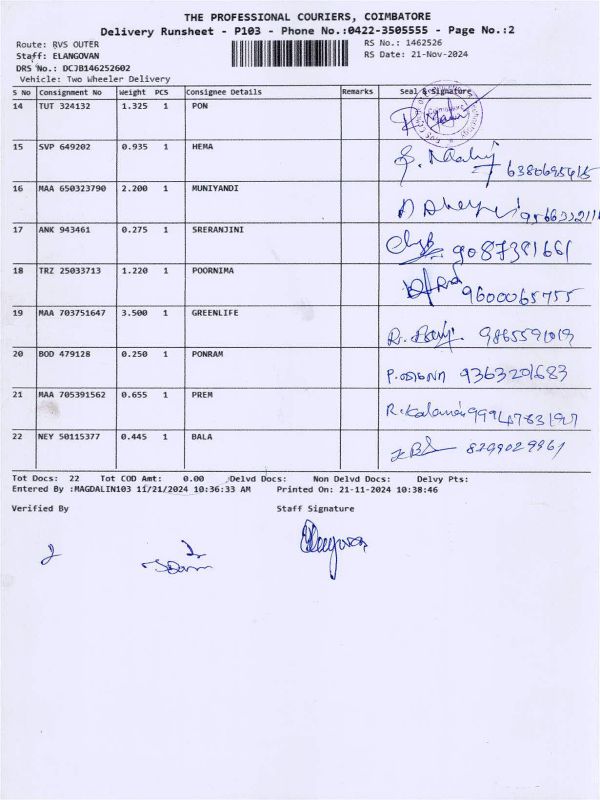 THE PROFESSIONAL COURIERS, COIMBATORE
Delivery Runsheet - P103 - Phone No.:0422-3505555 - Page No.:2
Route: RVS OUTER RS No.: 1462526
Staff: ELANGOVAN RS Date: 21-Nov-2024
DRS No.: DCJB146252602
Vehicle: Two Wheeler Delivery
S No Consignment No Weight PCS Consignee Details Remarks Seal & Signature
14 TUT 324132 1.325 1 PON
15 SVP 649202 0.935 1 HEMA
16 MAA 650323790 2.200 1 MUNIYANDI
17 ANK 943461 0.275 1 SRERANJINI 9087381661
18 TRZ 25033713 1.220 1 POORNIMA 9600065755
19 MAA 703751647 3.500 1 GREENLIFE
20 BOD 479128 0.250 1 PONRAM 9363201683
21 MAA 705391562 0.655 1 PREM
22 NEY 50115377 0.445 1 BALA
Tot Docs: 22 Tot COD Amt: 0.00 Delvd Docs: Non Delvd Docs: Delvy Pts:
Entered By :MAGDALIN103 11/21/2024 10:36:33 AM Printed On: 21-11-2024 10:38:46
Verified By Staff Signature